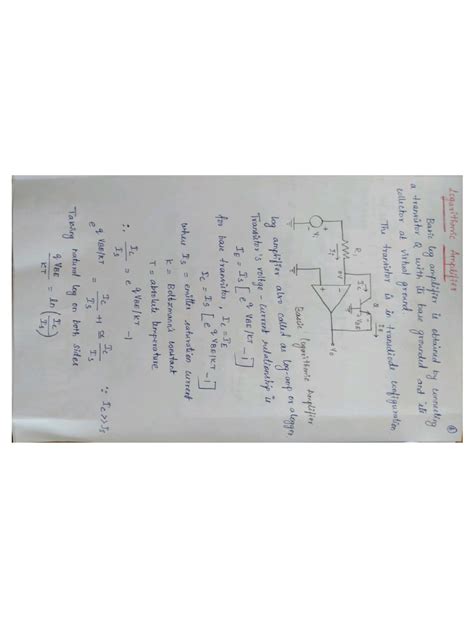 Logarithmic Amplifier
Basic log amplifier is obtained by connecting
a transistor Q with its base grounded and its
collector at virtual ground.
The transistor is in transdiode configuration
Q
IE
Ic
VBE
R1
If
0V
V1
V0
Basic logarithmic Amplifier
Log amplifier also called as log-amp or a logger.
Transistor's voltage - current relationship is
IE = Is [e^qVBE/KT -1]
for base transistor, Ic = IE
Ic = Is [e^qVBE/KT -1]
where Is = emitter saturation current
K = Boltzmann's constant
T = absolute temperature
∴ Ic/Is = e^qVBE/KT -1
e^qVBE/KT = Ic/Is +1 ≈ Ic/Is ∵ Ic>>Is
Taking natural log on both sides
qVBE/KT = ln(Ic/Is)